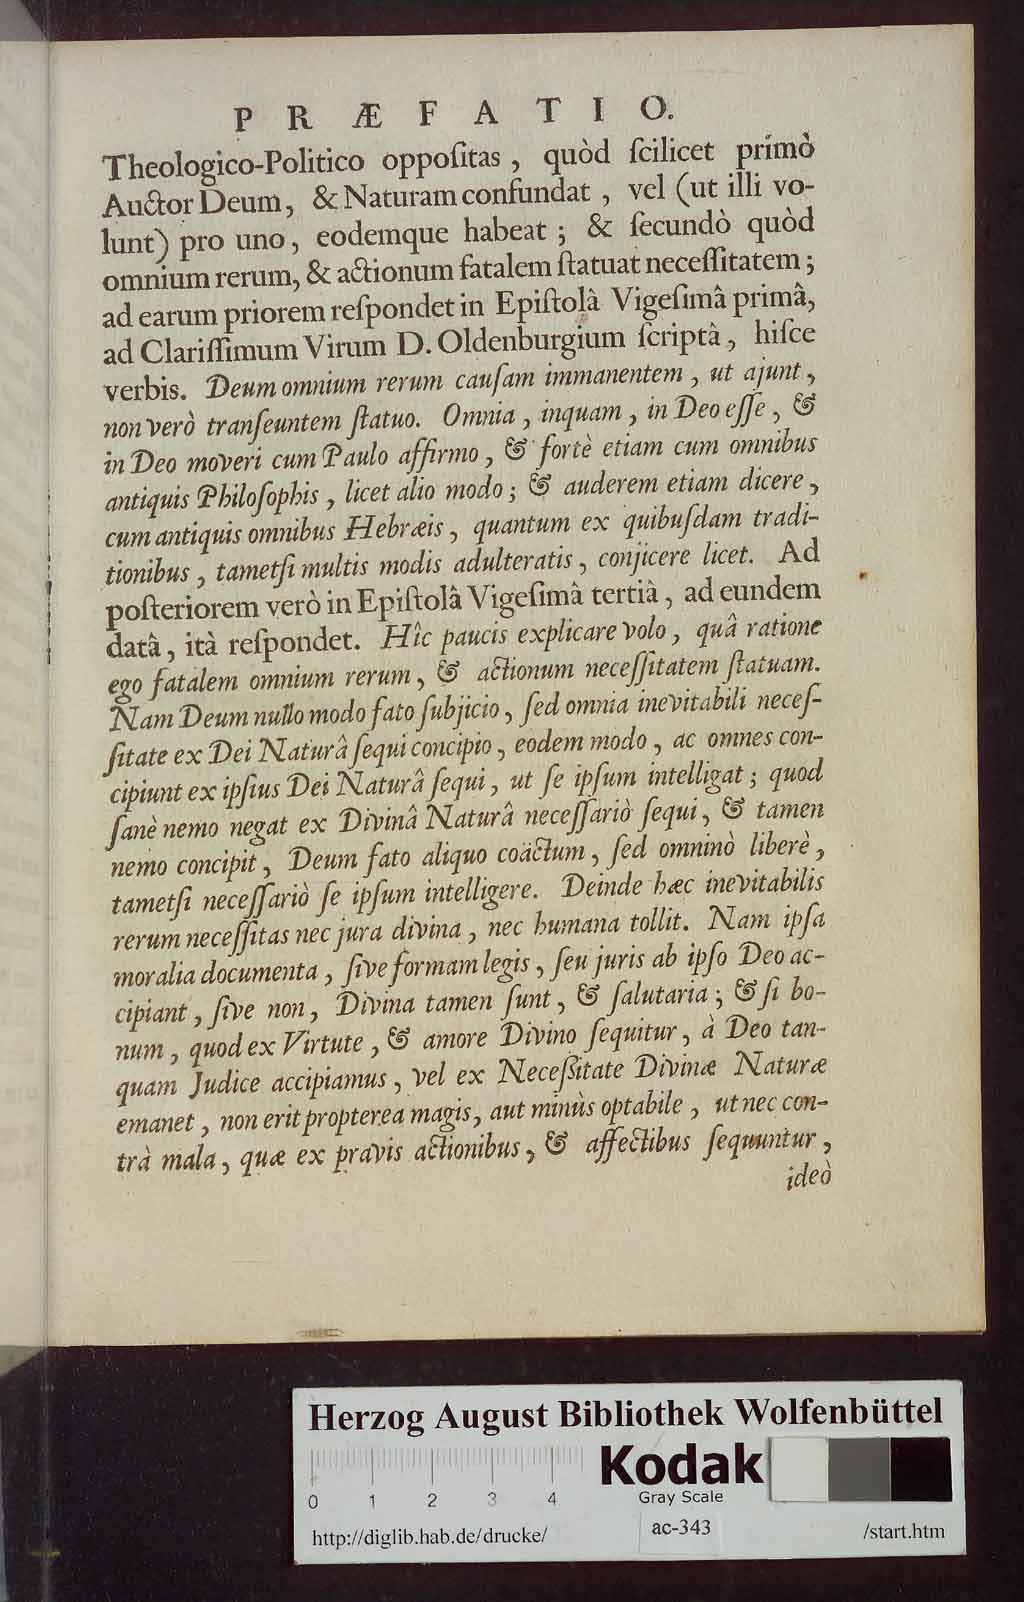 PRÆFATIO.
Theologico-Politico oppoſitas, quòd ſcilicet primò
Auctor Deum, & Naturam confundat, vel (ut illi vo-
lunt) pro uno, eodemque habeat; & ſecundò quòd
omnium rerum, & actionum fatalem ſtatuat neceſſitatem;
ad earum priorem reſpondet in Epiſtolâ Vigeſimâ primâ,
ad Clariſſimum Virum D. Oldenburgium ſcriptâ, hiſce
verbis. Deum omnium rerum cauſam immanentem, ut ajunt,
non verò tranſeuntem ſtatuo. Omnia, inquam, in Deo eſſe, &
in Deo moveri cum Paulo affirmo, & fortè etiam cum omnibus
antiquis Philoſophis, licet alio modo; & auderem etiam dicere,
cum antiquis omnibus Hebræis, quantum ex quibuſdam tradi-
tionibus, tametſi multis modis adulteratis, conjicere licet. Ad
poſteriorem verò in Epiſtolâ Vigeſimâ tertiâ, ad eundem
datâ, ità reſpondet. Hîc paucis explicare volo, quâ ratione
ego fatalem omnium rerum, & actionum neceſſitatem ſtatuam.
Nam Deum nullo modo fato ſubjicio, ſed omnia inevitabili neceſ-
ſitate ex Dei Naturâ ſequi concipio, eodem modo, ac omnes con-
cipiunt ex ipſius Dei Naturâ ſequi, ut ſe ipſum intelligat; quod
ſanè nemo negat ex Divinâ Naturâ neceſſariò ſequi, & tamen
nemo concipit, Deum fato aliquo coäctum, ſed omninò liberè,
tametſi neceſſariò ſe ipſum intelligere. Deinde hæc inevitabilis
rerum neceſſitas nec jura divina, nec humana tollit. Nam ipſa
moralia documenta, ſive formam legis, ſeu juris ab ipſo Deo ac-
cipiant, ſive non, Divina tamen ſunt, & ſalutaria; & ſi bo-
num, quod ex Virtute, & amore Divino ſequitur, à Deo tan-
quam Judice accipiamus, vel ex Neceſſitate Divinæ Naturæ
emanet, non erit propterea magis, aut minùs optabile, ut nec con-
trà mala, quæ ex pravis actionibus, & affectibus ſequuntur,
ideò
Herzog August Bibliothek Wolfenbüttel
Kodak
Gray Scale
0 1 2 3 4
http://diglib.hab.de/drucke/ ac-343 /start.htm